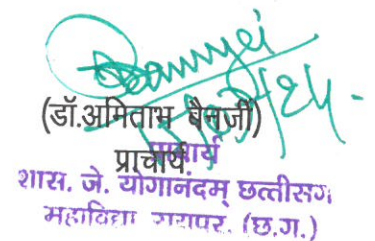 (डॉ.अमिताभ बैनर्जी)
प्राचार्य
प्राचार्य
शास. जे. योगानंदम् छत्तीसग
महाविद्या रायपुर, (छ.ग.)